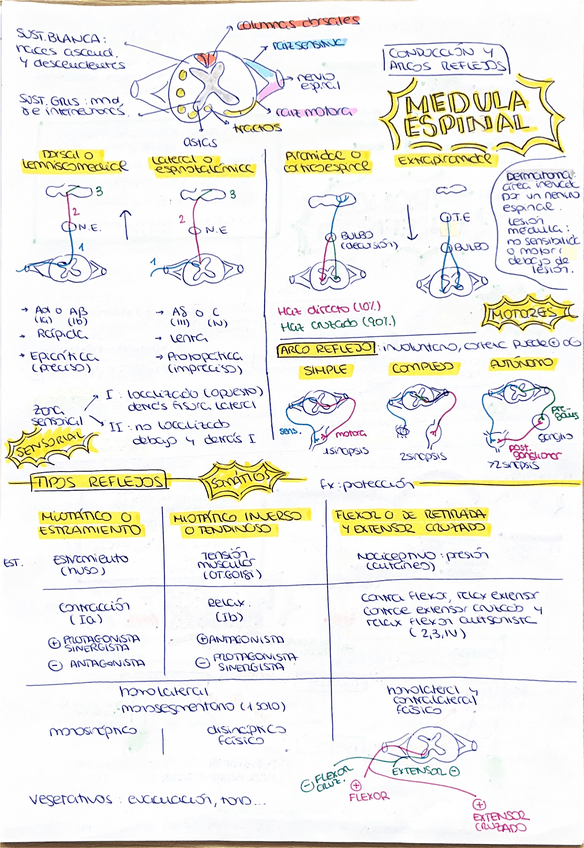 columnas dorsales
SUST. BLANCA:
raíces ascend.
y descendentes
raíz sensitiva
nervio
espinal
SUST. GRIS:
de interneurones
raíz motora
tractos
astas
CONDUCCIÓN Y
ARCOS REFLEJOS
MEDULA
ESPINAL
Dorsal o
lemniscomedial
Lateral o
espinotalámica
Piramidal o
corticoespinal
Extrapiramidal
3
2
N.E.
1
3
2
N.E
1
BULBO
(decusión)
T.E
BULBO
Dermatoma:
área inervada
por un nervio
espinal.
Lesión
médula:
no sensibilid
o motor ↓
debajo de
lesión.
→ Aα o Aβ
(Ia) (Ib)
→ Rápida
→ Epicrítica
(preciso)
→ Aδ o C
(III) (IV)
→ Lenta
→ Protopática
(impreciso)
Haz directo (10%)
Haz cruzado (90%)
MOTORES
ARCO REFLEJO: involuntario, corteza puede ⊕ o ⊖
SIMPLE
COMPLEJO
AUTÓNOMO
sens.
motora
1 sinapsis
2 sinapsis
pre.
ganglio
post.
ganglionar
>2 sinapsis
zona
sensorial
I: localizado (opuesto)
detrás fisura lateral
II: no localizado
debajo y detrás I
SENSORIAL
TIPOS REFLEJOS
SOMÁTICOS
fx: protección
MIOTÁTICO O
ESTIRAMIENTO
MIOTÁTICO INVERSO
O TENDINOSO
FLEXOR O DE RETIRADA
Y EXTENSOR CRUZADO
EST.
estiramiento
(huso)
Tensión
muscular
(OT.GOLGI)
Nociceptivo: presión
(cutáneo)
contracción
(Ia)
⊕ PROTAGONISTA
SINERGISTA
⊖ ANTAGONISTA
Relax.
(Ib)
⊕ ANTAGONISTA
⊖ PROTAGONISTA
SINERGISTA
contra flexor, relax extensor
contrae extensor cruzado y
relax flexor
(2,3,IV)
homolateral
monosegmentario (1 solo)
homolateral y
contralateral
fásico
monosináptico
disináptico
fásico
⊖ FLEXOR
CRUZ.
⊕
FLEXOR
EXTENSOR ⊖
⊕
EXTENSOR
CRUZADO
vegetativos: evacuación, tono...